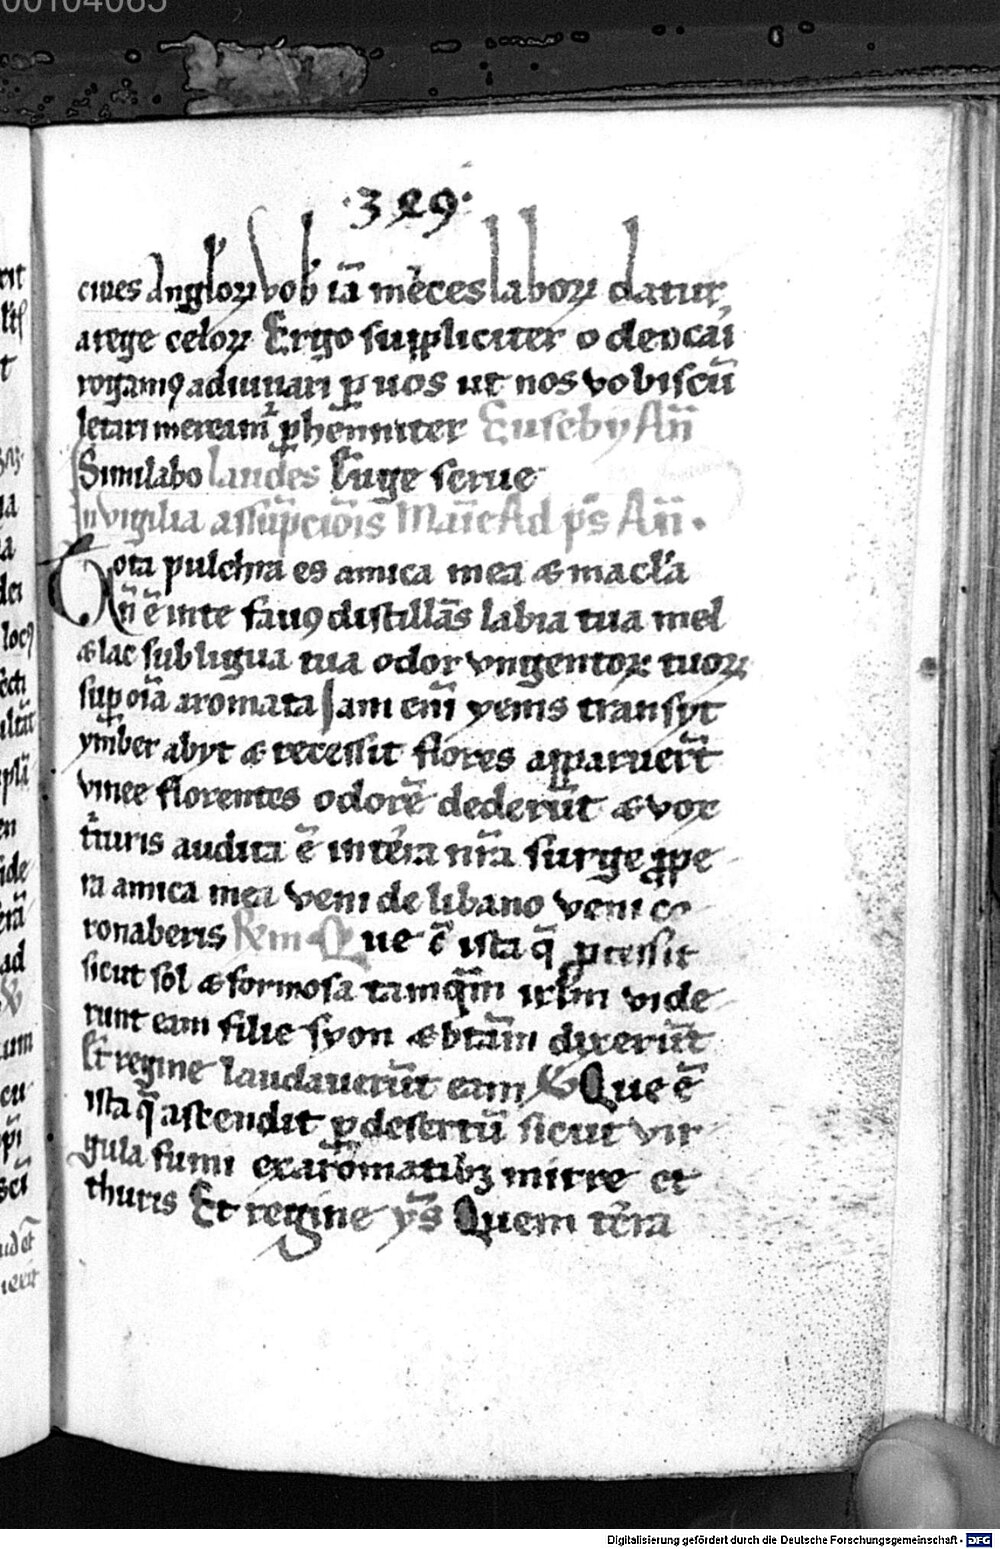 00104065
·329·
ciues Angloꝝ vob iā m̄ces laboꝝ datur
a rege celoꝝ Ergo suppliciter o deo cāi
rogamꝰ adiuuari ꝑ uos ut nos vobiscū
letari mereamᷣ ꝑhenniter Eusebÿ Añ
Similabo laudes Euge serue
In vigilia assūpcōis Marie Ad ps̄ Añ.
Tota pulchra es amica mea & macl̄a
n̄ ē in te fauꝰ distillās labia tua mel
& lac sub ligua tua odor vngentoꝝ tuoꝝ
suꝑ oīa aromata Iam eīn yems transyt
ymber abyt & recessit flores apparuer̄t
vinee florentes odorē dederūt & vox
t̄turis audita ē in t̄ra nr̄a surge ꝓpe
ra amica mea veni de libano veni co
ronaberis Rem Que ē ista q̄ ꝓcessit
sicut sol & formosa tamq̄m irl̄m vide
runt eam filie syon & btām dixerūt
Et regine laudauerūt eam V Que ē
ista q̄ ascendit ꝑ desertū sicut vir
gula fumi ex aromatibꝫ mirre et
thuris Et regine ys̄ Quem t̄ra
Digitalisierung gefördert durch die Deutsche Forschungsgemeinschaft - DFG